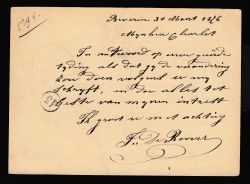 Beveren 30 Maart 1876
Mynheer Charlet
In antwoord op uwe goede
tyding als dat gy de verandering
kon doen volgens uw
schryft, en die alles tot
beste van mynen intrest
Ik groet u met achting
F. De Roover